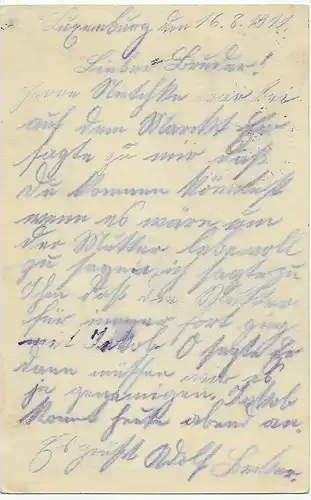 Luxemburg den 16.8.
Lieber Bruder!
Herr war bei
auf dem Markt Er
sagte zu mir daß
du kommen könntest
wenn es wäre um
der Mutter lebewoll
zu sagen, ich sagte zu
Ihm daß die Mutter
für immer fort ging
mit Jakob. O sagte Er
dann müssen wir es
ja genemigen. Jakob
komt heute abend an.
Es grüßt Adolf